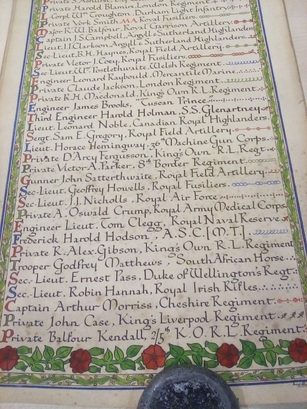 Private Harold Damen, London Regiment
L. Corpl. Wm Coughton, Durham Light Infantry
Private York Smith, M.A. Royal Fusiliers
Major R.W. Balfour, Royal Garrison Artillery
Captain J.S. Campbell, Argyll & Sutherland Highlanders
Lieut. J.S. Clarkson, Argyll & Sutherland Highlanders
Sec. Lieut. B.H. Haynes, Royal Field Artillery
Private Victor J. Coey, Royal Fusiliers
Sec. Lieut. Wm Postlethwaite, Welsh Regiment
Engineer Leonard Raybould, Mercantile Marine
Private Claude Jackson, London Regiment
Private R.H. Macdonald, King's Own R.L. Regiment
Engineer James Brooks, "Tuscan Prince"
Third Engineer Harold Holman, S.S. Glenartney
Lieut. Leonard Noble, Canadian Royal Highlanders
Sergt. Sam E. Gregory, Royal Field Artillery
Lieut. Horace Hemingway, Machine Gun Corps
Private D'Arcy Fergusson, King's Own R.L. Regt.
Private Victor A. Parker, 8th Border Regiment
Gunner John Satterthwaite, Royal Field Artillery
Sec. Lieut. Geoffrey Howells, Royal Fusiliers
Sec. Lieut. J.J. Nicholls, Royal Air Force
Private A. Oswald Crump, Royal Army Medical Corps
Engineer Lieut. Tom Clegg, Royal Naval Reserve
Frederick Harold Hodgson, A.S.C [M.T.]
Private R. Alex. Gibson, King's Own R.L. Regiment
Trooper Godfrey Matthews, South African Horse
Sec. Lieut. Ernest Pass, Duke of Wellington's Regt.
Sec. Lieut. Robin Hannah, Royal Irish Rifles
Captain Arthur Morriss, Cheshire Regiment
Private John Case, King's Liverpool Regiment
Private Balfour Kendall, 2/5th K.O.R.L. Regiment